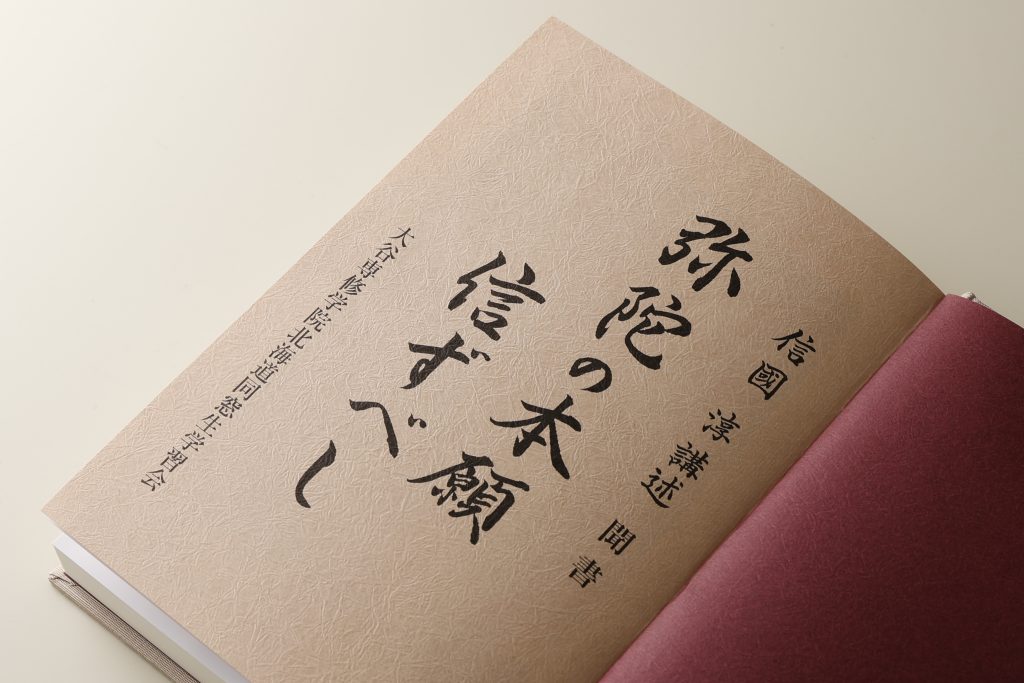 信國 淳 講述 聞書
弥陀の本願
信ずべし
大谷専修学院北海道同窓生学習会